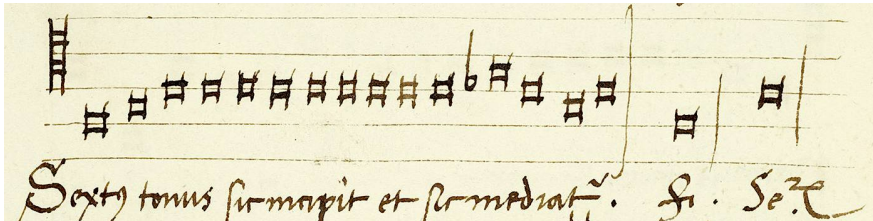 Sextꝯ tonus sic incipit et sic mediatᷣ. fi. Se.